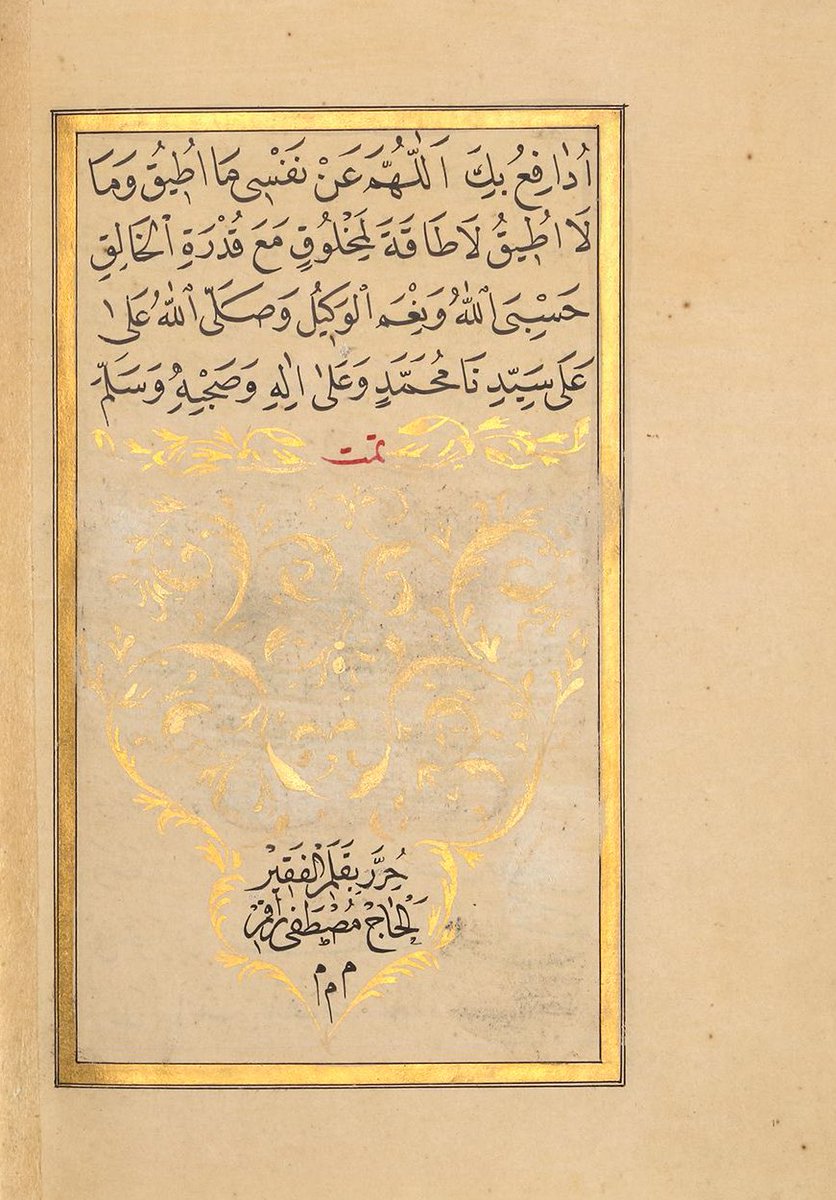 اُدَافِعُ بِكَ اَللّٰهُمَّ عَنْ نَفْسِى مَا اُطِيقُ وَمَا
لَا اُطِيقُ لَا طَاقَةَ لِمَخْلُوقٍ مَعَ قُدْرَةِ الْخَالِقِ
حَسْبِىَ اللّٰهُ وَنِعْمَ الْوَكِيلُ وَصَلَّى اللّٰهُ عَلٰى
عَلَى سَيِّدِنَا مُحَمَّدٍ وَعَلٰى اٰلِهِ وَصَحْبِهِ وَسَلَّمَ
تمت
حُرِّرَ بِقَلَمِ الْفَقِيرِ
الْحَاجّ مُصْطَفَى
م م م